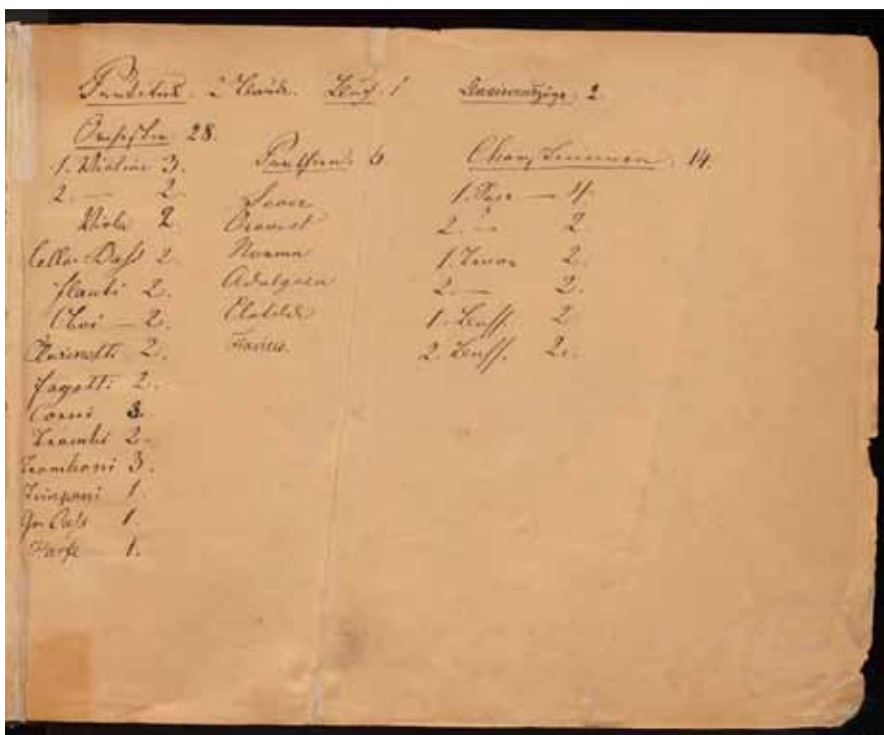 Partitur. 2 Bände. Buch. 1 Klavierauszüge. 2
Orchester 28.
1. Violine 3.
2. — 2.
Viola 2.
Cello u Baß 2.
Flauti 2.
Oboi — 2.
Clarinetti 2.
Fagotti 2.
Corni 3.
Trombi 2.
Tromboni 3.
Timpani 1
Gr. Baß 1.
Harfe 1.
Parthien. 6
Sever
Orovist
Norma
Adalgisa
Clotilde
Flavius.
Chorstimmen. 14.
1. — 4.
2. — 2.
1. Tenor 2.
2. — 2.
1. Bass. 2
2. Bass. 2.